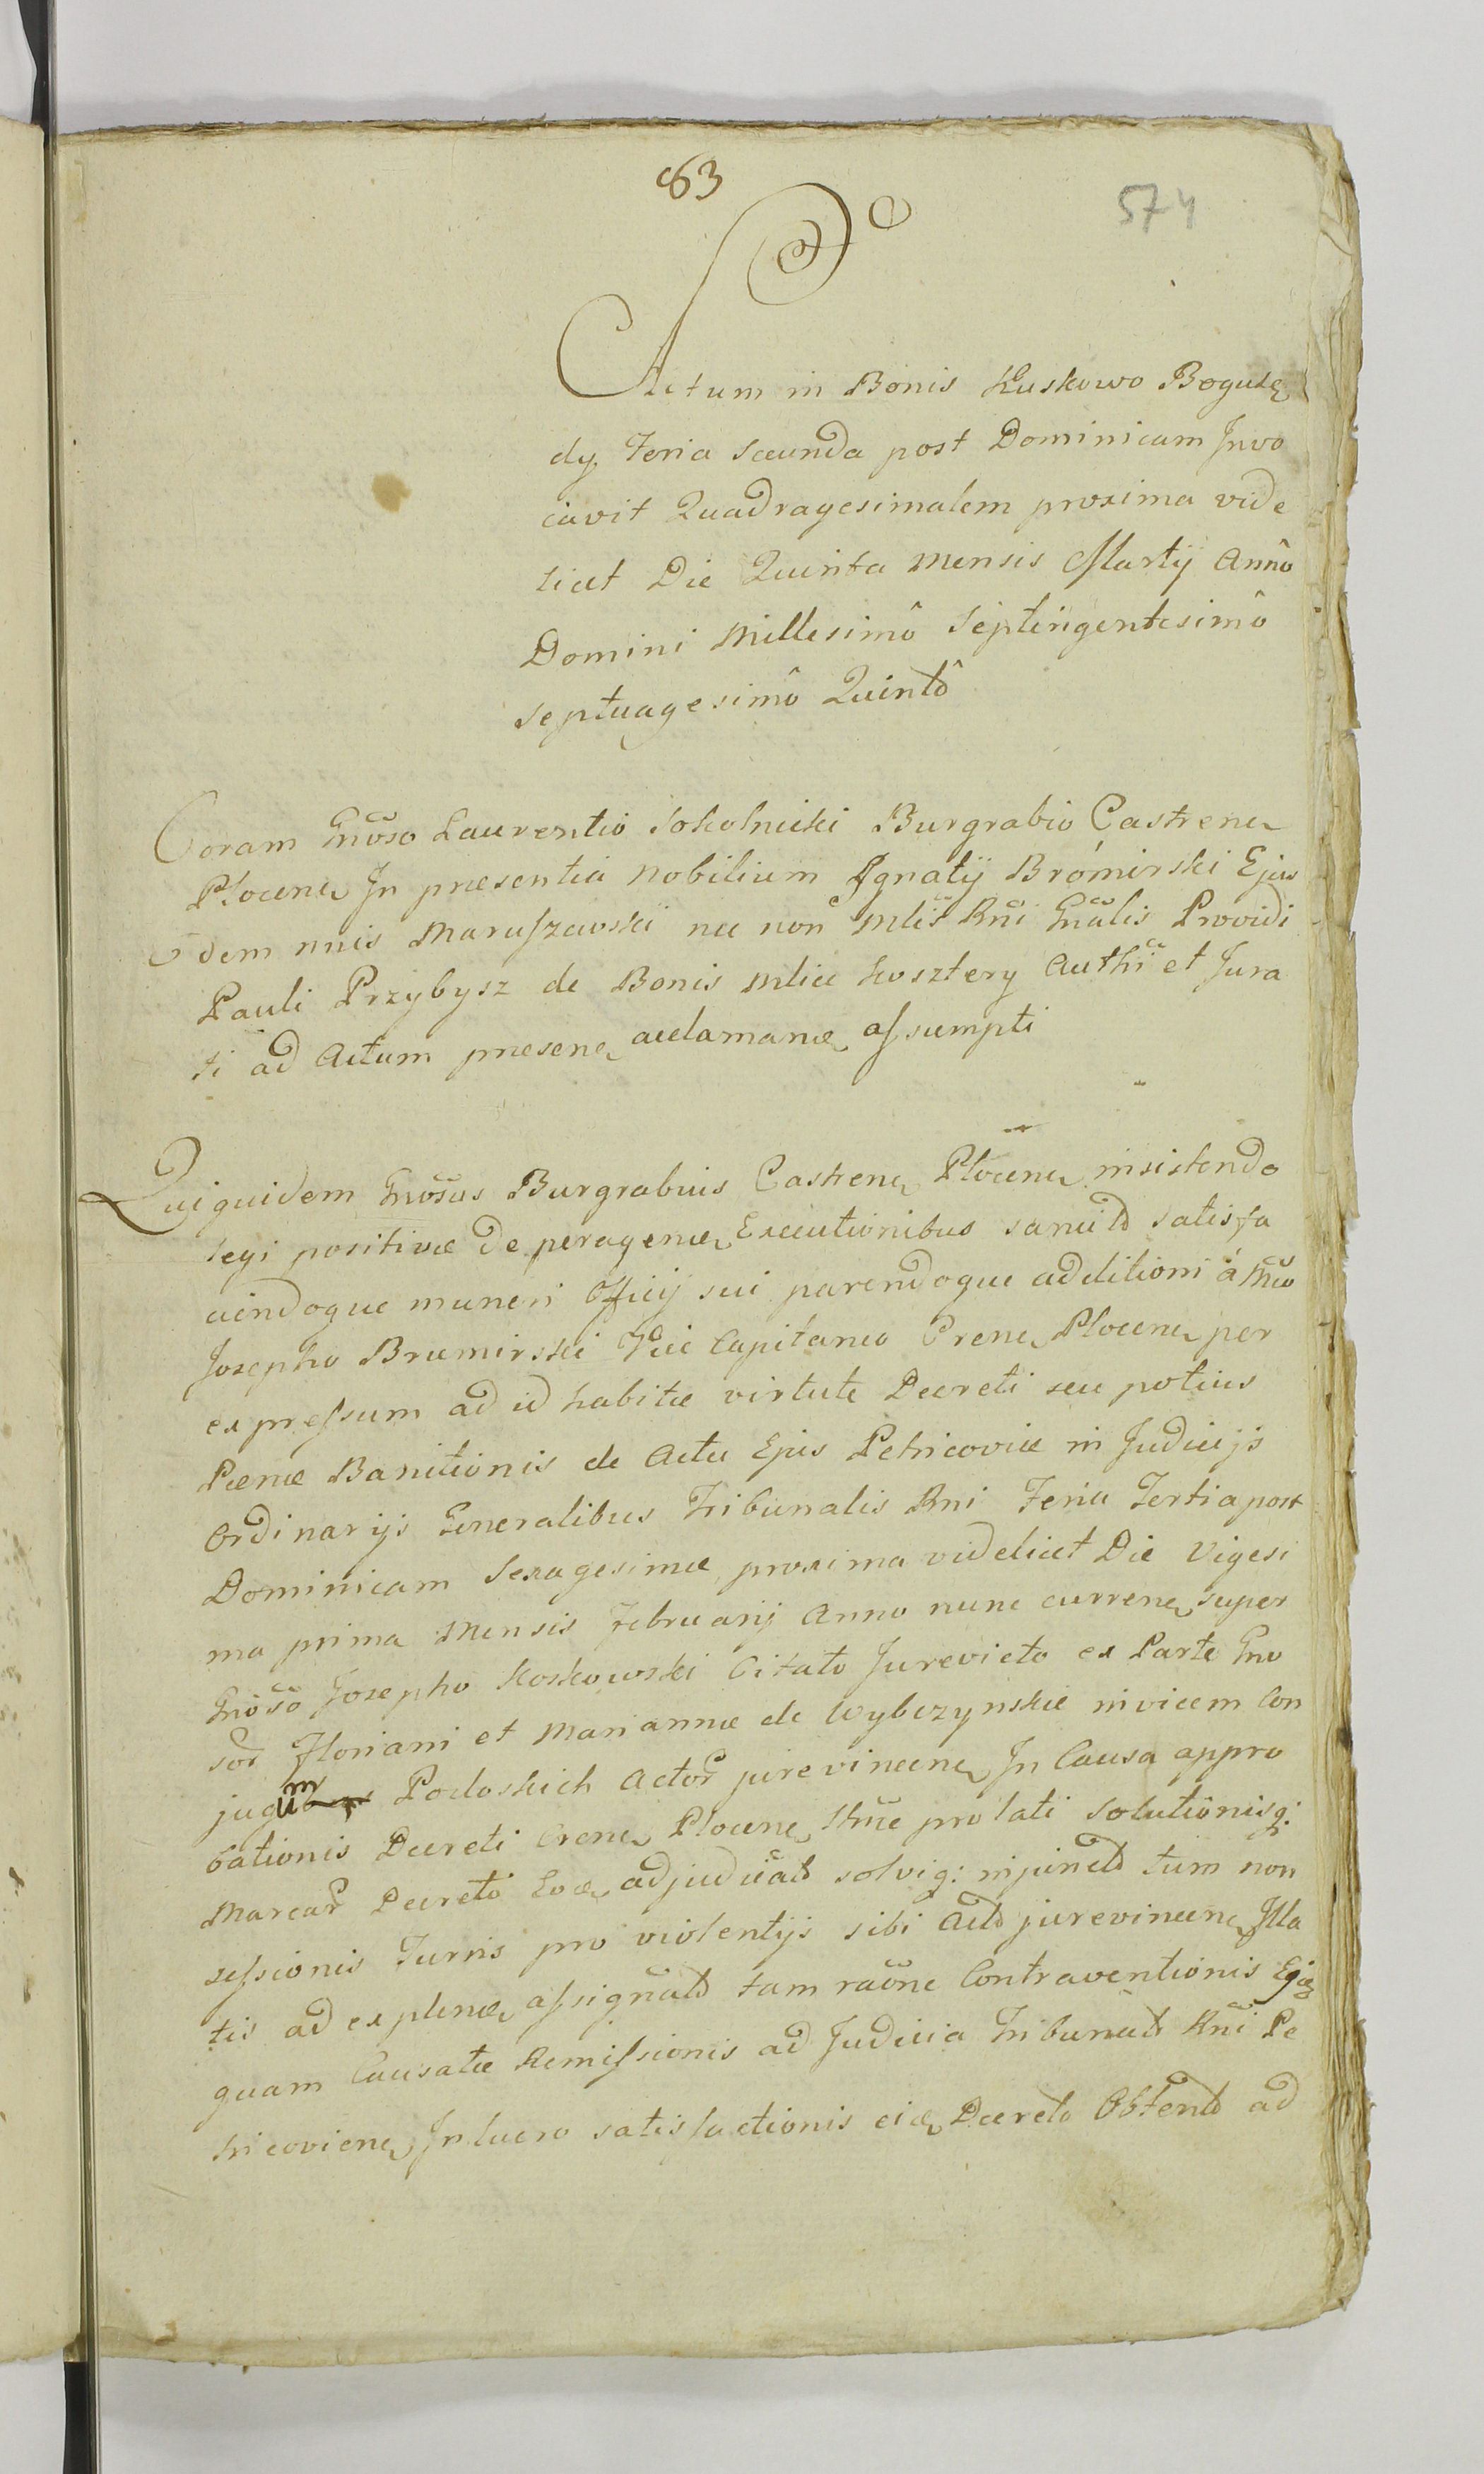 83
574
Actum in Bonis Kuskowo Bogusę
dy Feria Secunda post Dominicam Invo
cavit Quadragesimalem proxima vide
licet Die Quinta Mensis Martij Annô
Domini Millesimô Septingentesimô
Septuagesimô Quintô
Coram Gnoso Laurentio Sokolnicki Burgrabio Castrene
Plocene In praesentia Nobilium Ignatij Bromirski Ejus
dem mnis Maruszewski nec non Mlis Rni Gnalis Providi
Pauli Przybysz de Bonis Mlice Kosztery Authi et Jura
ti ad Actum praesene acclamanae assumpti
Quiquidem Gnosus Burgrabius Castrene Plocene insistendo
legi positivae de peragenae Executionibus sancito satisfa
ciendoque muneri Officij sui parendoque additioni á Mco
Josepho Bromirski Vice Capitaneo Crene Plocene per
expressum ad id habitae virtute Decreti seu potius
Paenae Banitionis de Actu Ejus Petricoviae in Judicijs
Ordinarijs Generalibus Tribunalis Rni Feria Tertia post
Dominicam Sexagesimae proxima videlicet Die Vigesi
ma prima Mensis Februarij Anno nunc currene super
Gnoso Josepho Koskowski Citato Jurevicto ex Parte Gno
sor Floriani et Mariannae de Wybczynskie invicem Con
jugum Podoskich Actor jurevincene In Causa appro
bationis Decreti Crene Plocene prolati Solutionisq:
Marcar Decreto adjudicato solviq: injuncto tum non
sessionis Turris pro violentijs sibi Acto jurevincene Illa
tis ad explenae assignato tam raone Contraventionis
quam Causatae Remissionis ad Judicia Tribunal Rni Pe
tricoviene In lucro satisfactionis Decreto Obtento ad